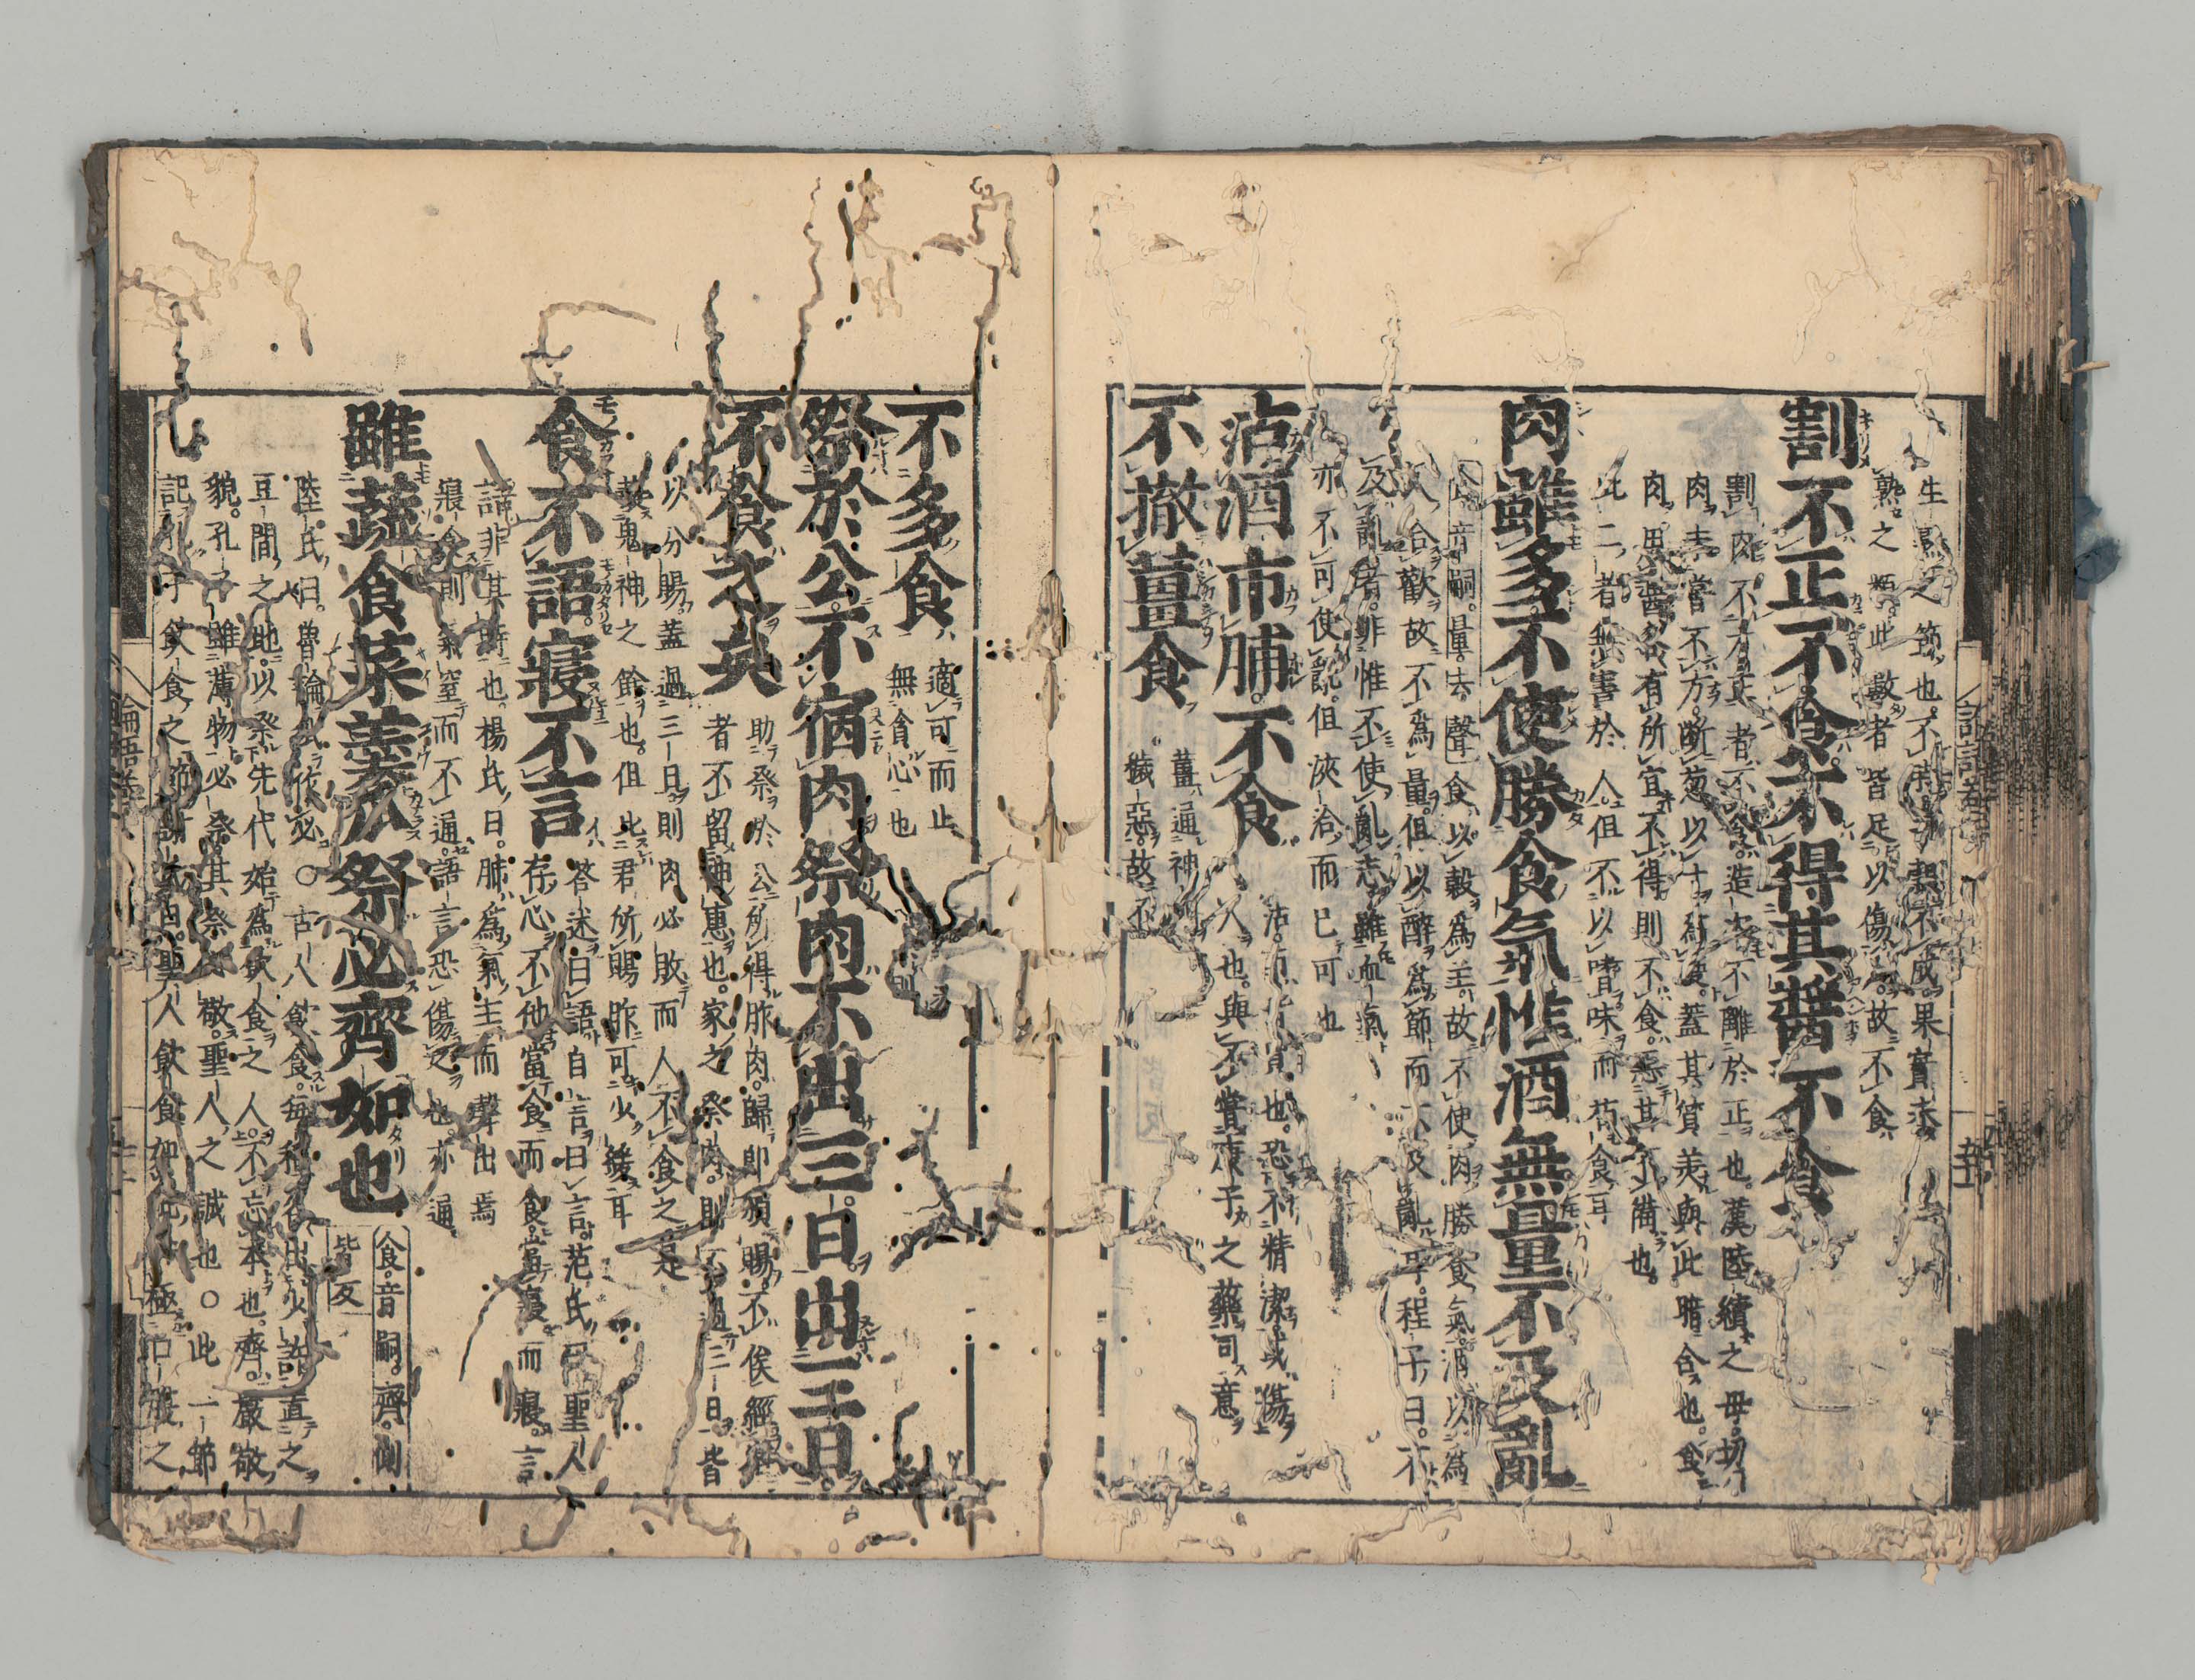 生熟之節也。不時五穀不成果實未
熟之類。此數者皆足以傷人。故不食
割不正不食不得其醬不食
割肉不方正者不食。造次不離於正也。漢陸續之母。切
肉未嘗不方。斷葱以寸爲度。蓋其質美與此暗合也。食
肉用醬各有所宜不得則不食。惡其不備也。
此二者無害於人。但不以嗜味而苟食耳
肉雖多不使勝食氣惟酒無量不及亂
食音嗣。量去聲 食以穀爲主。故不使肉勝食氣。酒以爲
人合歡故不爲量。但以醉爲節而不及亂耳。程子曰。不
及亂者。非惟不使亂志。雖血氣
亦不可使亂。但浹洽而已可也
沽酒市脯。不食
沽。市皆買也。恐不精潔。或傷
人也。與不嘗康子之藥同意
不撤薑食
薑通神
穢惡。故不
不多食
適可而止
無貪心也
祭於公不宿肉祭肉不出三日。出三日。
不食之矣
助祭於公。所得胙肉。歸即頒賜。不俟經宿
者不留神惠也。家之祭肉。則不過三日。皆
以分賜。蓋過三日。則肉必敗而人不食之是
褻鬼神之餘也。但比君所賜胙可少緩耳
食不語。寢不言
答述曰語自言曰言。范氏曰聖人
存心不他當食而食當寢而寢。言
語非其時也。楊氏曰。肺爲氣主而聲出焉
寢食則氣窒而不通。語言恐傷之也。亦通
雖蔬食菜羹瓜祭必齊如也
食音嗣。齊。側
皆反
陸氏曰。魯論瓜作必〇古人飲食。每種各出少許置之
豆間之地。以祭先代始爲飲食之人。不忘本也。齊。嚴敬
貌。孔子雖薄物必祭其祭必敬。聖人之誠也〇此一節
記孔子飲食之節謝氏曰。聖人飲食如此非極口腹之